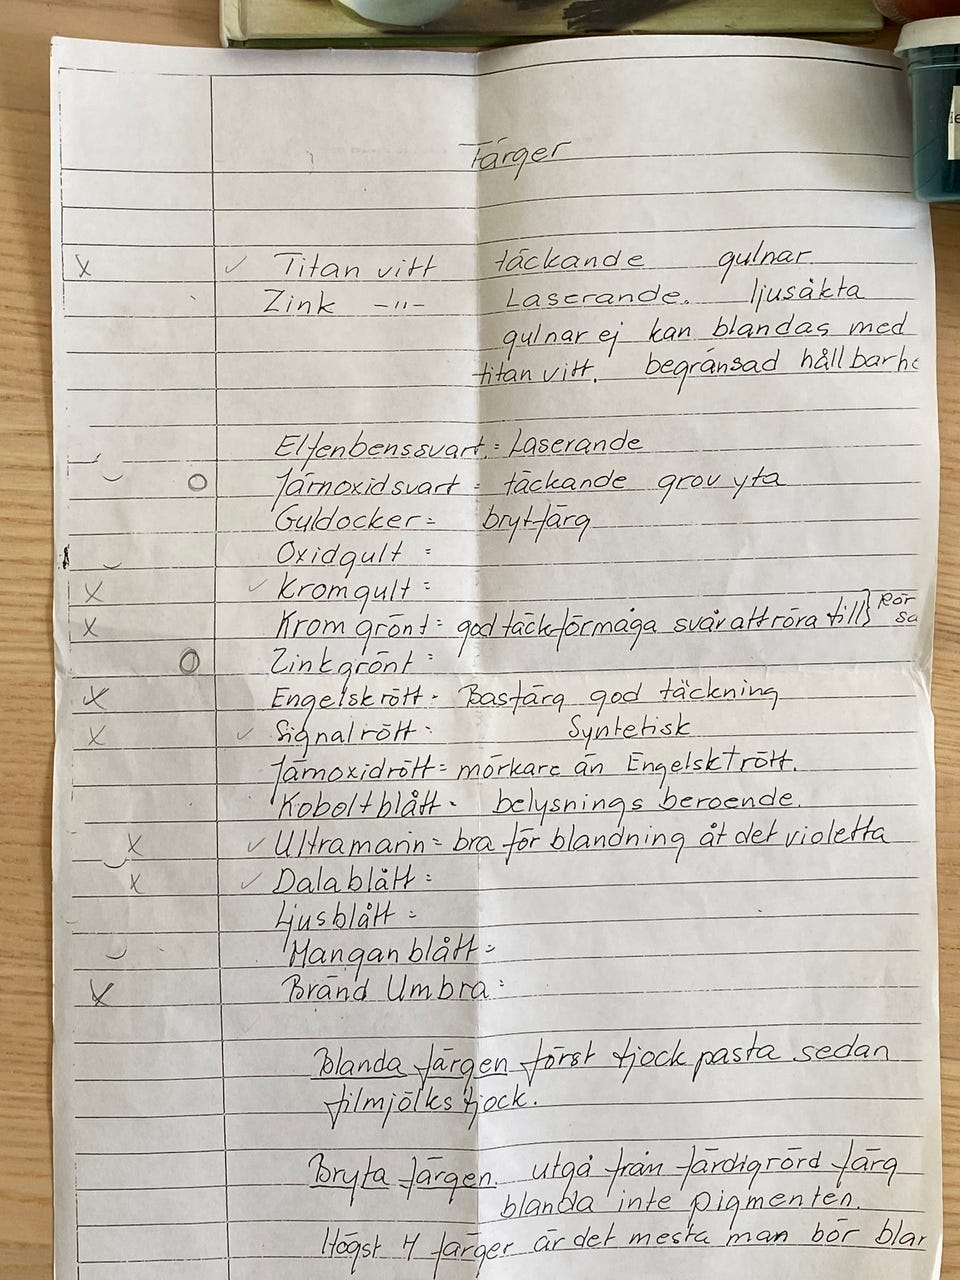 Färger
X ✓ Titan vitt täckande gulnar
Zink -"- Laserande. ljusäkta
gulnar ej kan blandas med
titan vitt. begränsad hållbarhe
Elfenbenssvart = Laserande
O Järnoxidsvart = täckande grov yta
Guldocker = brytfärg
Oxidgult =
X ✓ Kromgult =
X Krom grönt = god täckförmåga svår att röra till} Rör
sa
O Zinkgrönt =
X Engelskrött = Basfärg god täckning
X ✓ Signalrött = Syntetisk
Järnoxidrött = mörkare än Engelsktrött.
Koboltblått = belysnings beroende.
X ✓ Ultramarin = bra för blandning åt det violetta
X ✓ Dalablått =
Ljusblått =
Manganblått =
X Bränd Umbra =
Blanda färgen först tjock pasta sedan
filmjölkstjock.
Bryta färgen. utgå från färdigrörd färg
blanda inte pigmenten.
Högst 4 färger är det mesta man bör blan